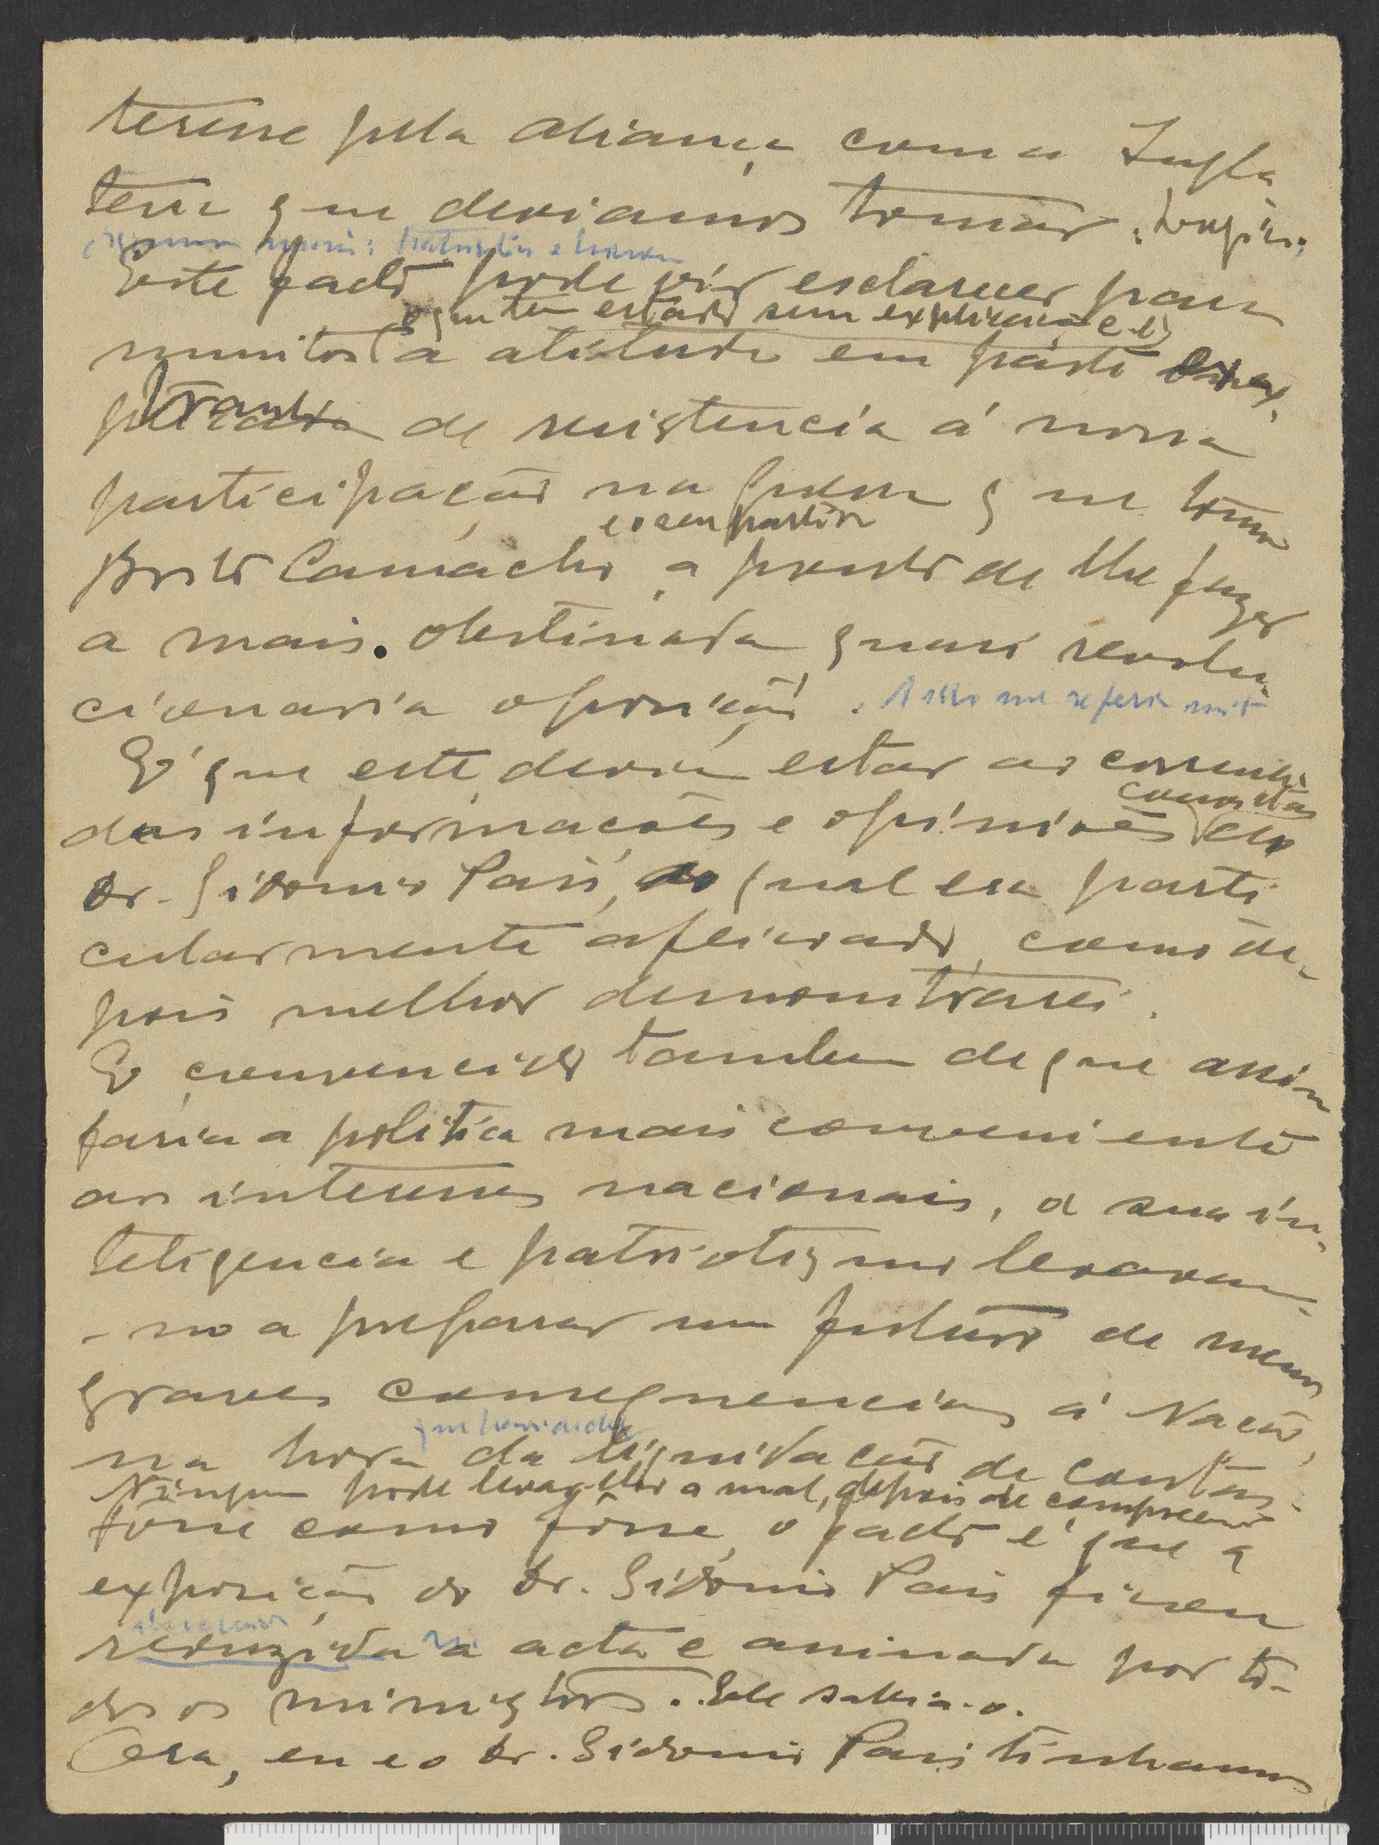 teresse pela aliança com a Ingla
terra que deviamos tomar.
Este facto pode vir esclarecer para
o que tem estado sem explicação
muitos a atitude em parte
de resistencia á nossa
participação na guerra que tomou
e o seu partido
Brito Camacho, a ponto de lhe fazer
a mais obstinada quasi revolu-
cionaria oposição. A isso me referi
É que este, devia estar ao corrente
conosco
das informações e opiniões do
dr. Sidonio Pais, ao qual era parti
cularmente afeiçoado, como de-
pois melhor demonstrarei.
E convencido tambem de que assim
faria a politica mais conveniente
aos interesses nacionais, a sua in-
teligencia e patriotismo levavam-
-no a preparar um futuro de menos
graves consequencias á Nação,
na hora da liquidação de contas.
Ninguem pode levar-lho a mal, depois de
fôsse como fôsse, o facto é que a
exposição do dr. Sidonio Pais ficou
reduzida a acta e assinada por to-
dos os ministros. Ele sabia-o.
Ora, eu e o dr. Sidonio Pais tinhamos